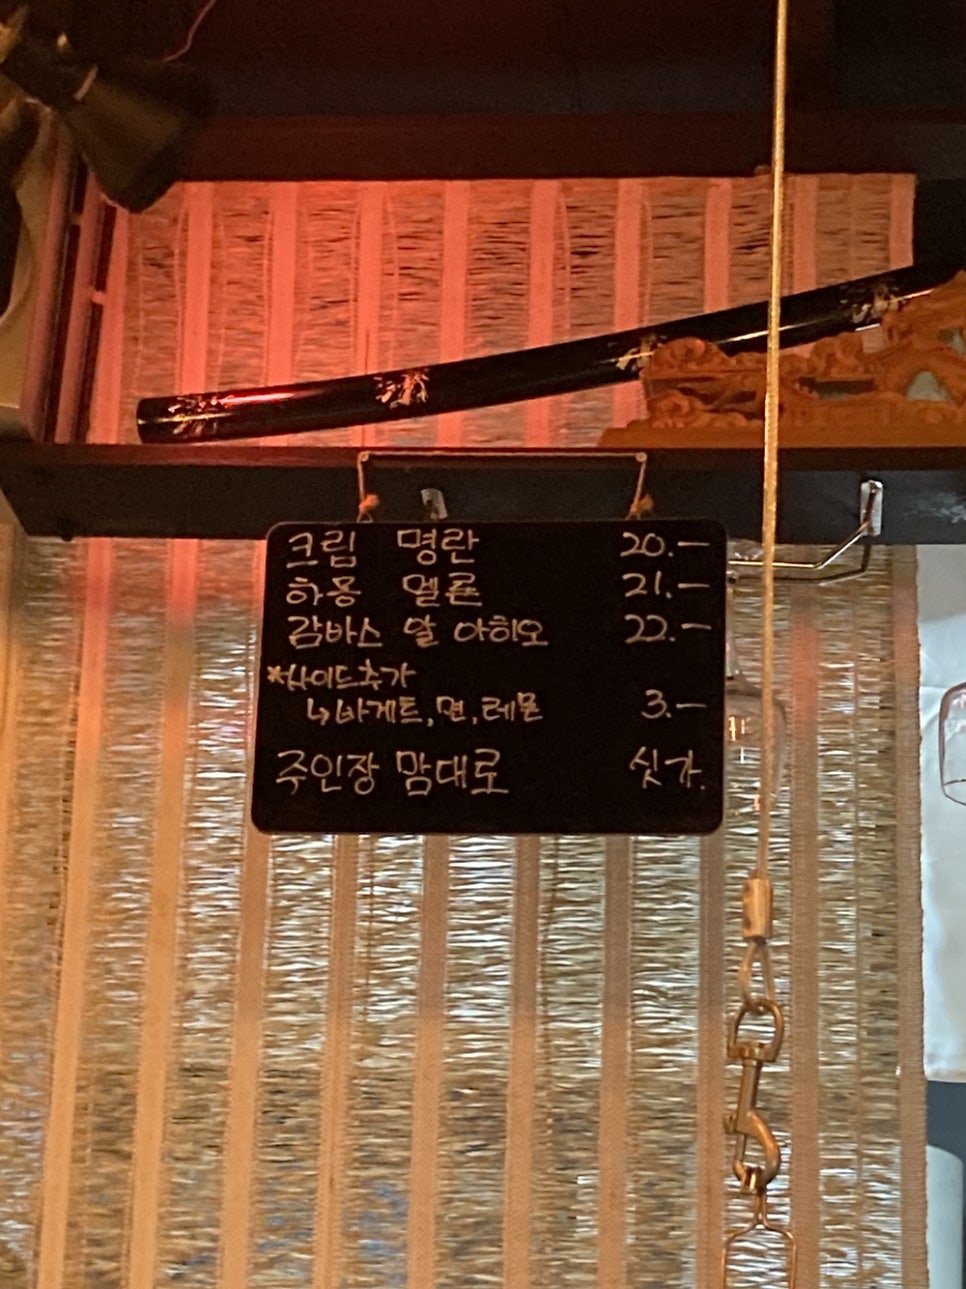 크림 명란 20.-
하몽 멜론 21.-
감바스 알 아히오 22.-
*사이드추가
↳바게트, 면, 레몬 3.-
주인장 맘대로 싯가.